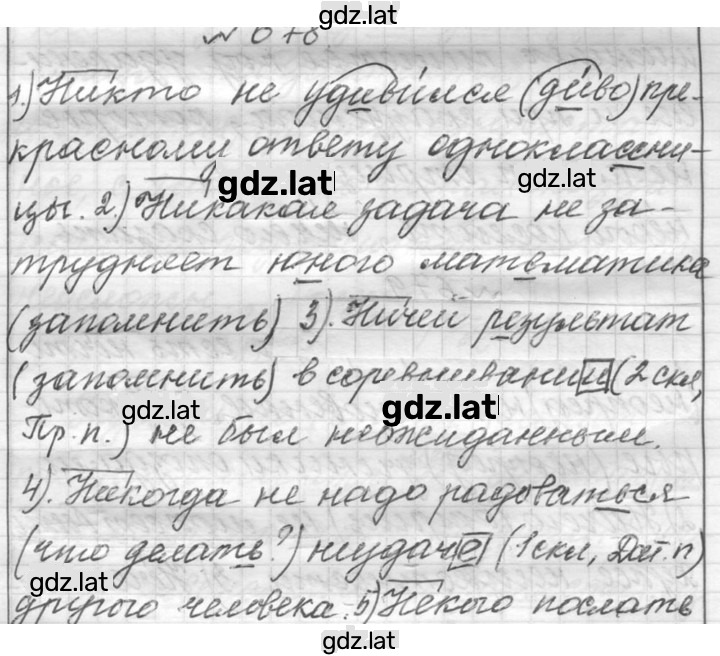 gdz.lat
№ 678
1.) Никто не удивился (диво) пре-
красному ответу одноклассни-
gdz.lat gdz.lat
цы. 2.) Никакая задача не за-
трудняет юного математика
(запомнить) 3). Ничей результат
(запомнить) в соревновании (2 скл,
gdz.lat gdz.lat
Пр. п.) не был неожиданным.
4). Никогда не надо радоваться
(что делать?) неудаче (1 скл, Дат. п)
gdz.lat
другого человека. 5) Некого послать
gdz.lat